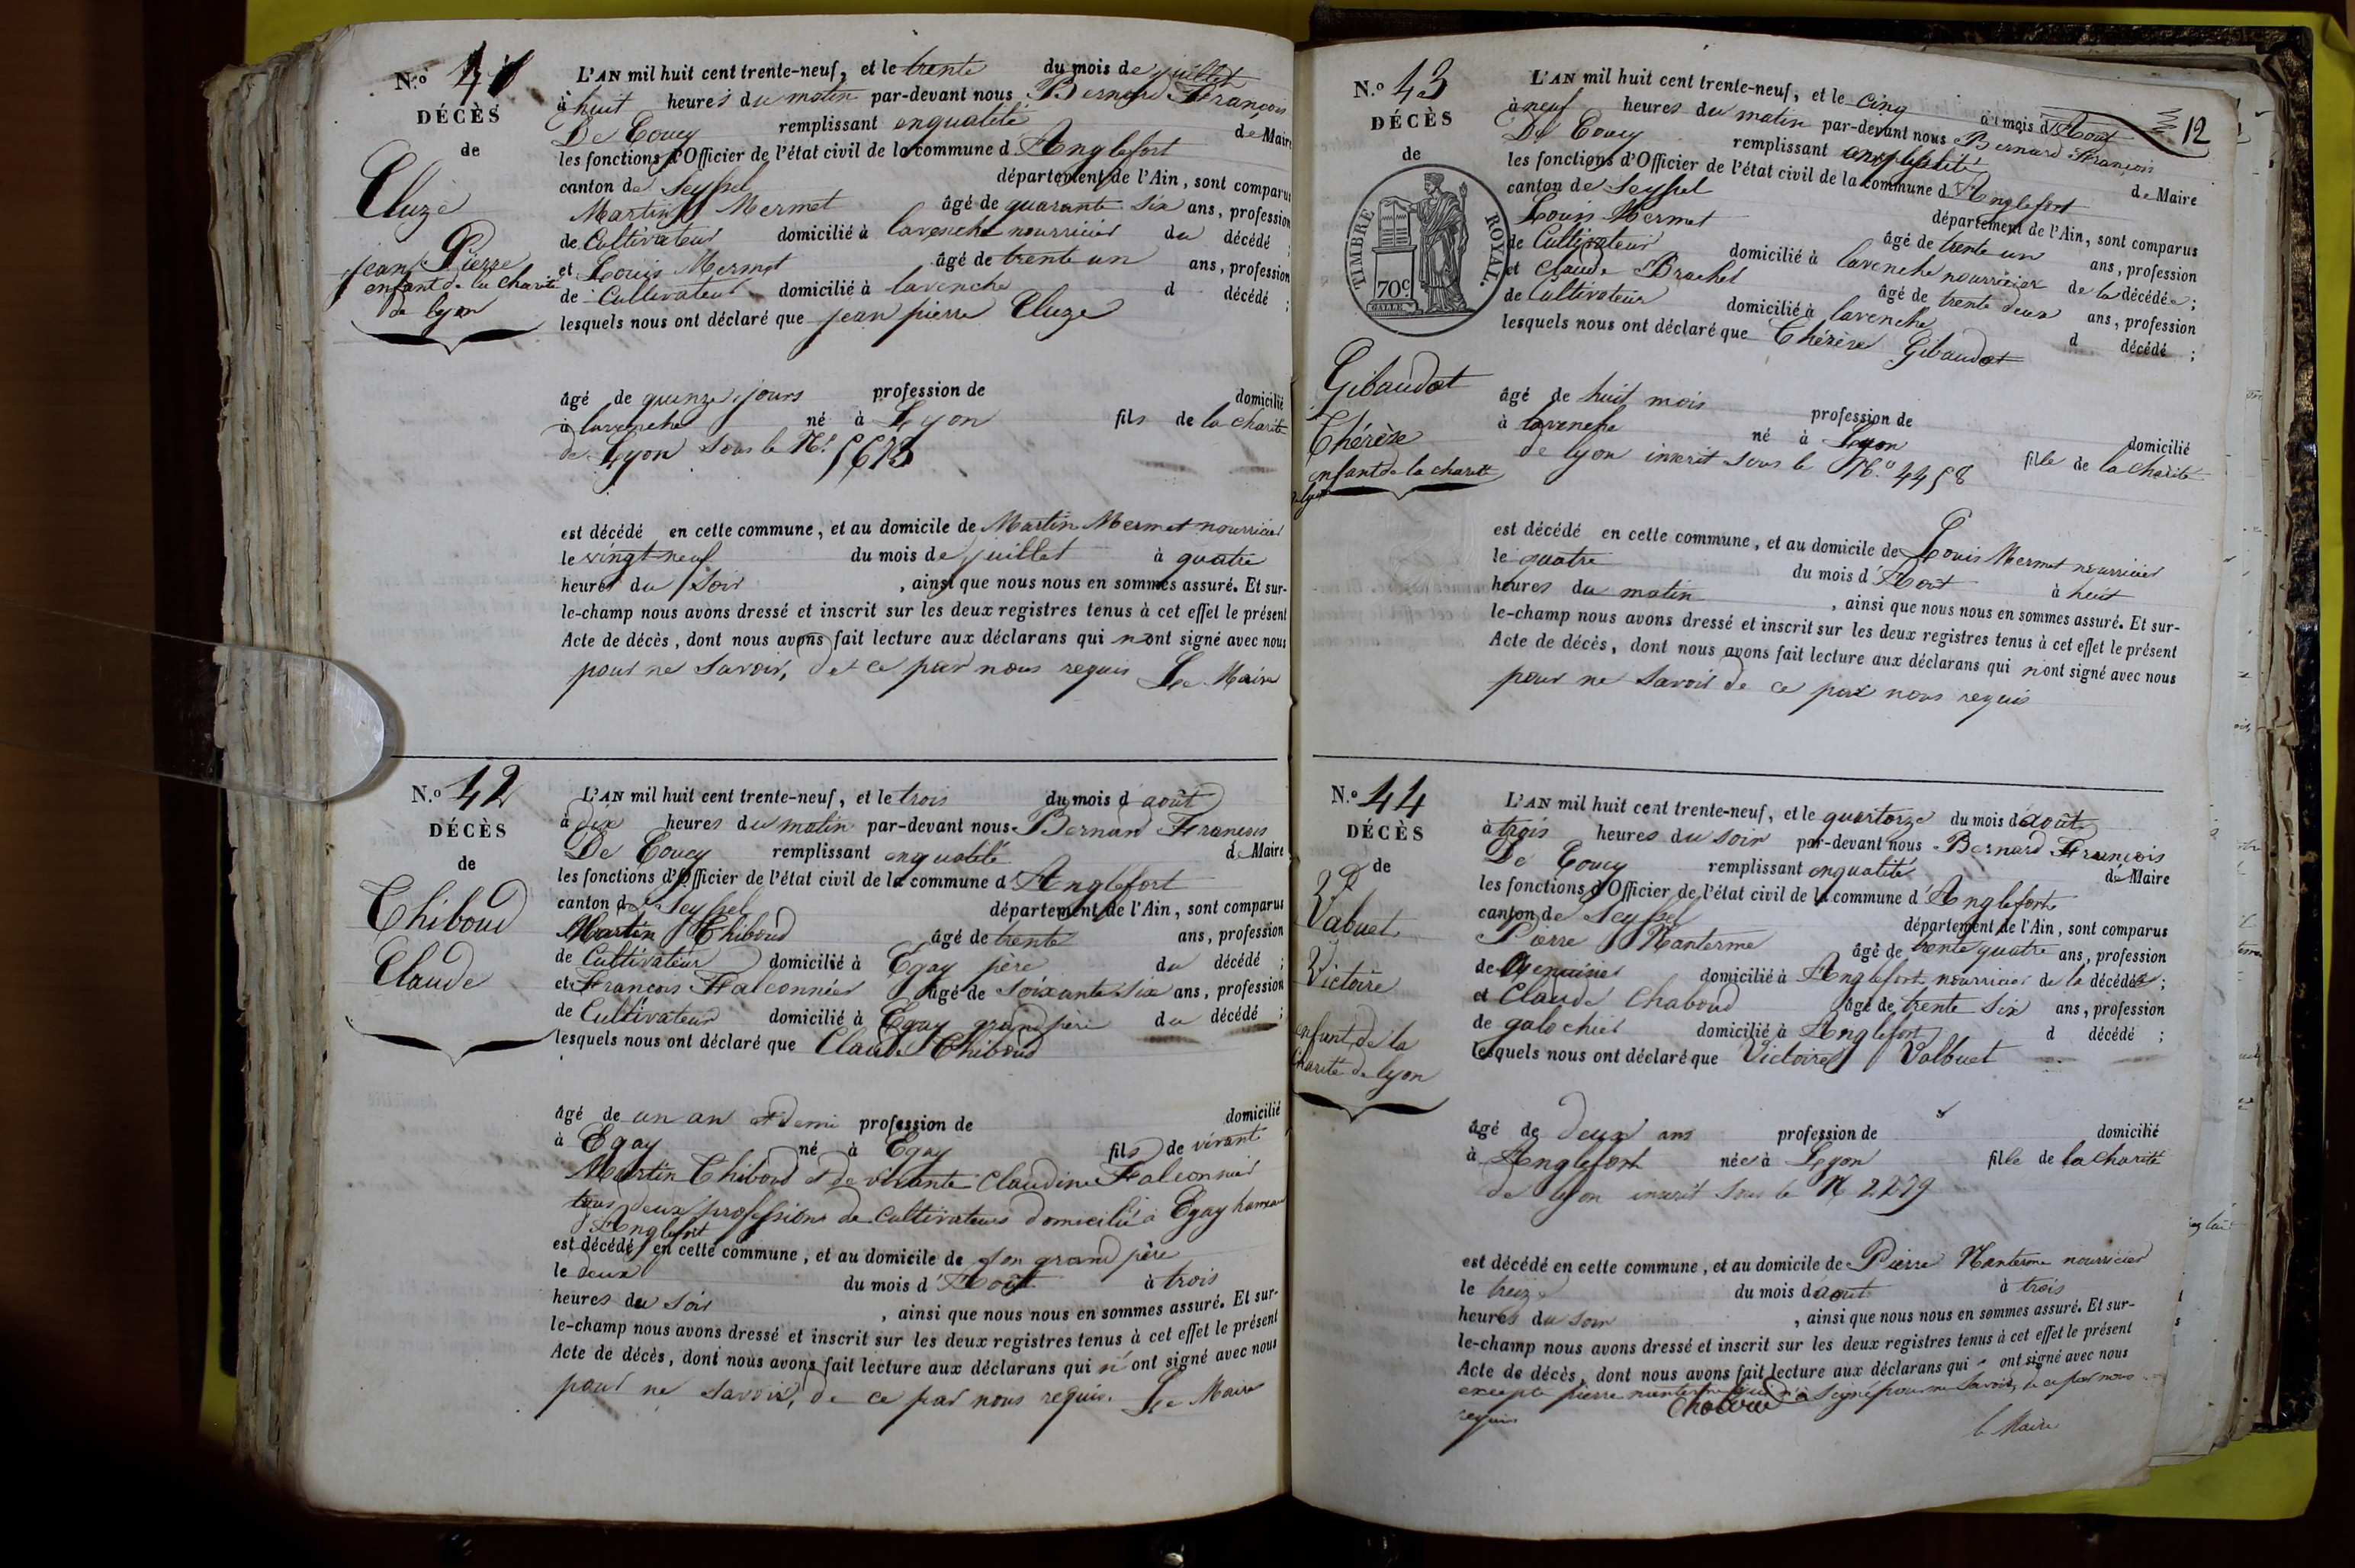 N.º 41
DÉCÈS
de
Cluze
jean Pierre
enfant de la charité
de lyon
L'AN mil huit cent trente-neuf, et le trente du mois de juillet
à huit heures du matin par-devant nous Bernard François
De Coucy remplissant enqualité de Maire
les fonctions d'Officier de l'état civil de la commune d'Anglefort
canton de Seyssel département de l'Ain, sont comparus
Martin Mermet âgé de quarante six ans, profession
de Cultivateur domicilié à lavenche nourricier du décédé ;
et Louis Mermet âgé de trente un ans, profession
de Cultivateur domicilié à lavenche d décédé ;
lesquels nous ont déclaré que jean pierre Cluze
âgé de quinze jours profession de domicilié
à lavenche né à Lyon fils de la charité
de Lyon sous le N.º 5673
est décédé en cette commune, et au domicile de Martin Mermet nourricier
le vingt-neuf du mois de juillet à quatre
heures du soir , ainsi que nous nous en sommes assuré. Et sur-
le-champ nous avons dressé et inscrit sur les deux registres tenus à cet effet le présent
Acte de décès, dont nous avons fait lecture aux déclarans qui n'ont signé avec nous
pour ne savoir, de ce par nous requis Le Maire
N.º 42
DÉCÈS
de
Thiboud
Claude
L'AN mil huit cent trente-neuf, et le trois du mois d'août
à dix heures du matin par-devant nous Bernard François
De Coucy remplissant enqualité de Maire
les fonctions d'Officier de l'état civil de la commune d'Anglefort
canton de Seyssel département de l'Ain, sont comparus
Martin Thiboud âgé de trente ans, profession
de Cultivateur domicilié à Egay père du décédé ;
et François Falconnier âgé de soixante six ans, profession
de Cultivateur domicilié à Egay grand père du décédé ;
lesquels nous ont déclaré que Claude Thiboud
âgé de un an et demi profession de domicilié
à Egay né à Egay fils de vivant
Martin Thiboud et de vivante Claudine Falconnier
tous deux profession de cultivateurs domicilié à Egay hameau
d'Anglefort
est décédé en cette commune, et au domicile de son grand père
le deux du mois d'Août à trois
heures du soir , ainsi que nous nous en sommes assuré. Et sur-
le-champ nous avons dressé et inscrit sur les deux registres tenus à cet effet le présent
Acte de décès, dont nous avons fait lecture aux déclarans qui n'ont signé avec nous
pour ne savoir, de ce par nous requis. Le Maire
12
N.º 43
DÉCÈS
de
TIMBRE ROYAL.
70c
Gibaudat
Thérèse
enfant de la charité
de lyon
L'AN mil huit cent trente-neuf, et le cinq du mois d'Août
à neuf heures du matin par-devant nous Bernard François
De Coucy remplissant enqualité de Maire
les fonctions d'Officier de l'état civil de la commune d'Anglefort
canton de Seyssel département de l'Ain, sont comparus
Louis Mermet âgé de trente un ans, profession
de Cultivateur domicilié à lavenche nourricier de la décédée ;
et Claude Brachet âgé de trente deux ans, profession
de Cultivateur domicilié à lavenche d décédé ;
lesquels nous ont déclaré que Thérèse Gibaudat
âgé de huit mois profession de domicilié
à lavenche né à Lyon fille de la charité
de lyon inscrit sous le N.º 4458
est décédé en cette commune, et au domicile de Louis Mermet nourricier
le quatre du mois d'Août à huit
heures du matin , ainsi que nous nous en sommes assuré. Et sur-
le-champ nous avons dressé et inscrit sur les deux registres tenus à cet effet le présent
Acte de décès, dont nous avons fait lecture aux déclarans qui n'ont signé avec nous
pour ne savoir de ce par nous requis
N.º 44
DÉCÈS
de
Vabuet
Victoire
enfant de la
charité de lyon
L'AN mil huit cent trente-neuf, et le quatorze du mois d'août
à trois heures du soir par-devant nous Bernard François
De Coucy remplissant enqualité de Maire
les fonctions d'Officier de l'état civil de la commune d'Anglefort
canton de Seyssel département de l'Ain, sont comparus
Pierre Nanterme âgé de trente quatre ans, profession
de domicilié à Anglefort nourricier de la décédée ;
et Claude Chaboud âgé de trente six ans, profession
de galochier domicilié à Anglefort d décédé ;
lesquels nous ont déclaré que Victoire Valbuet
âgé de deux ans profession de domicilié
à Anglefort née à Lyon fille de la charité
de lyon inscrit sous le N 2279
est décédé en cette commune, et au domicile de Pierre Nanterme nourricier
le treize du mois d'août à trois
heures du soir , ainsi que nous nous en sommes assuré. Et sur-
le-champ nous avons dressé et inscrit sur les deux registres tenus à cet effet le présent
Acte de décès, dont nous avons fait lecture aux déclarans qui ont signé avec nous
excepté pierre nanterme qui n'a signé pour ne savoir, de ce par nous
requis Chaboud
le Maire